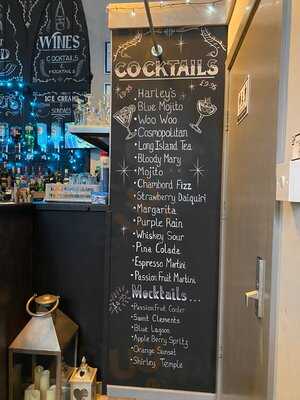 WINES
COCKTAILS
MOCKTAILS
ICE CREAM
SUNDAES
COCKTAILS
£9.95
Harley's
Blue Mojito
• Woo Woo
• Cosmopolitan
• Long Island Tea
• Bloody Mary
• Mojito
• Chambord Fizz
• Strawberry Daiquiri
• Margarita
• Purple Rain
• Whiskey Sour
• Pina Colada
• Espresso Martini
• Passion Fruit Martini
Mocktails...
• Passionfruit Cooler
• Saint Clements
• Blue Lagoon
• Apple Berry Spritz
• Orange Sunset
• Shirley Temple